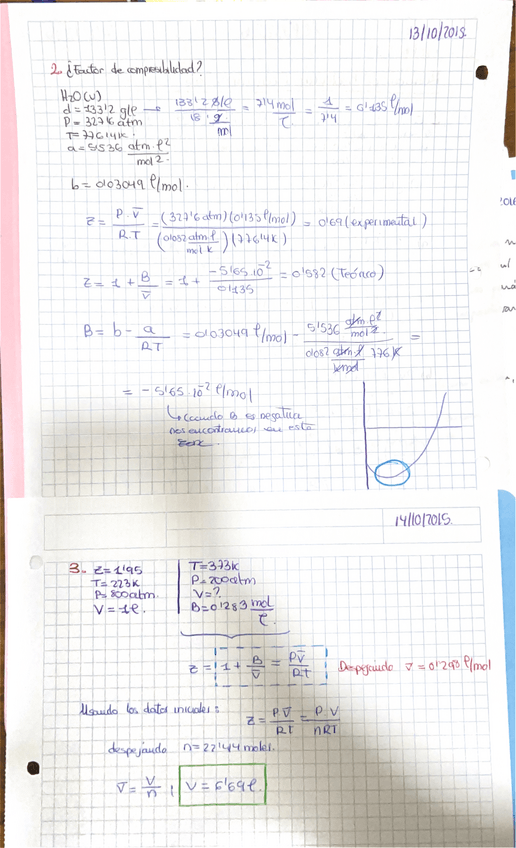 13/10/2015.
2. ¿Factor de compresibilidad?
H₂O(v)
d = 133'2 g/ℓ → 133'2 g/ℓ / 18 g/mol = 7'4 mol/ℓ = 1/7'4 = 0'135 ℓ/mol
P = 327'6 atm
T = 776'4 K.
a = 5'536 atm·ℓ²/mol².
b = 0'03049 ℓ/mol.
z = P·V̅/RT = (327'6 atm)(0'135 ℓ/mol)/(0'082 atm·ℓ/mol K)(776'4K) = 0'69 (experimental)
z = 1 + B/V̅ = 1 + -5'65·10⁻²/0'135 = 0'582 (Teórico)
B = b - a/RT = 0'03049 ℓ/mol - 5'536 atm·ℓ²/mol² / 0'082 atm·ℓ/K·mol 776 K =
= -5'65 10⁻² ℓ/mol
↳ Cuando B es negativa
nos encontramos en esta
zona.
14/10/2015.
3. z = 1'95
T = 223K
P = 800atm.
V = 1ℓ.
T = 373K
P = 200atm
V = ?
B = 0'1283 mol/ℓ.
z = 1 + B/V̅ = PV̅/RT Despejando V̅ = 0'298 ℓ/mol
Usando los datos iniciales: z = PV̅/RT = P V/nRT
despejando n = 22'44 moles.
V̅ = V/n ; V = 6'69ℓ.